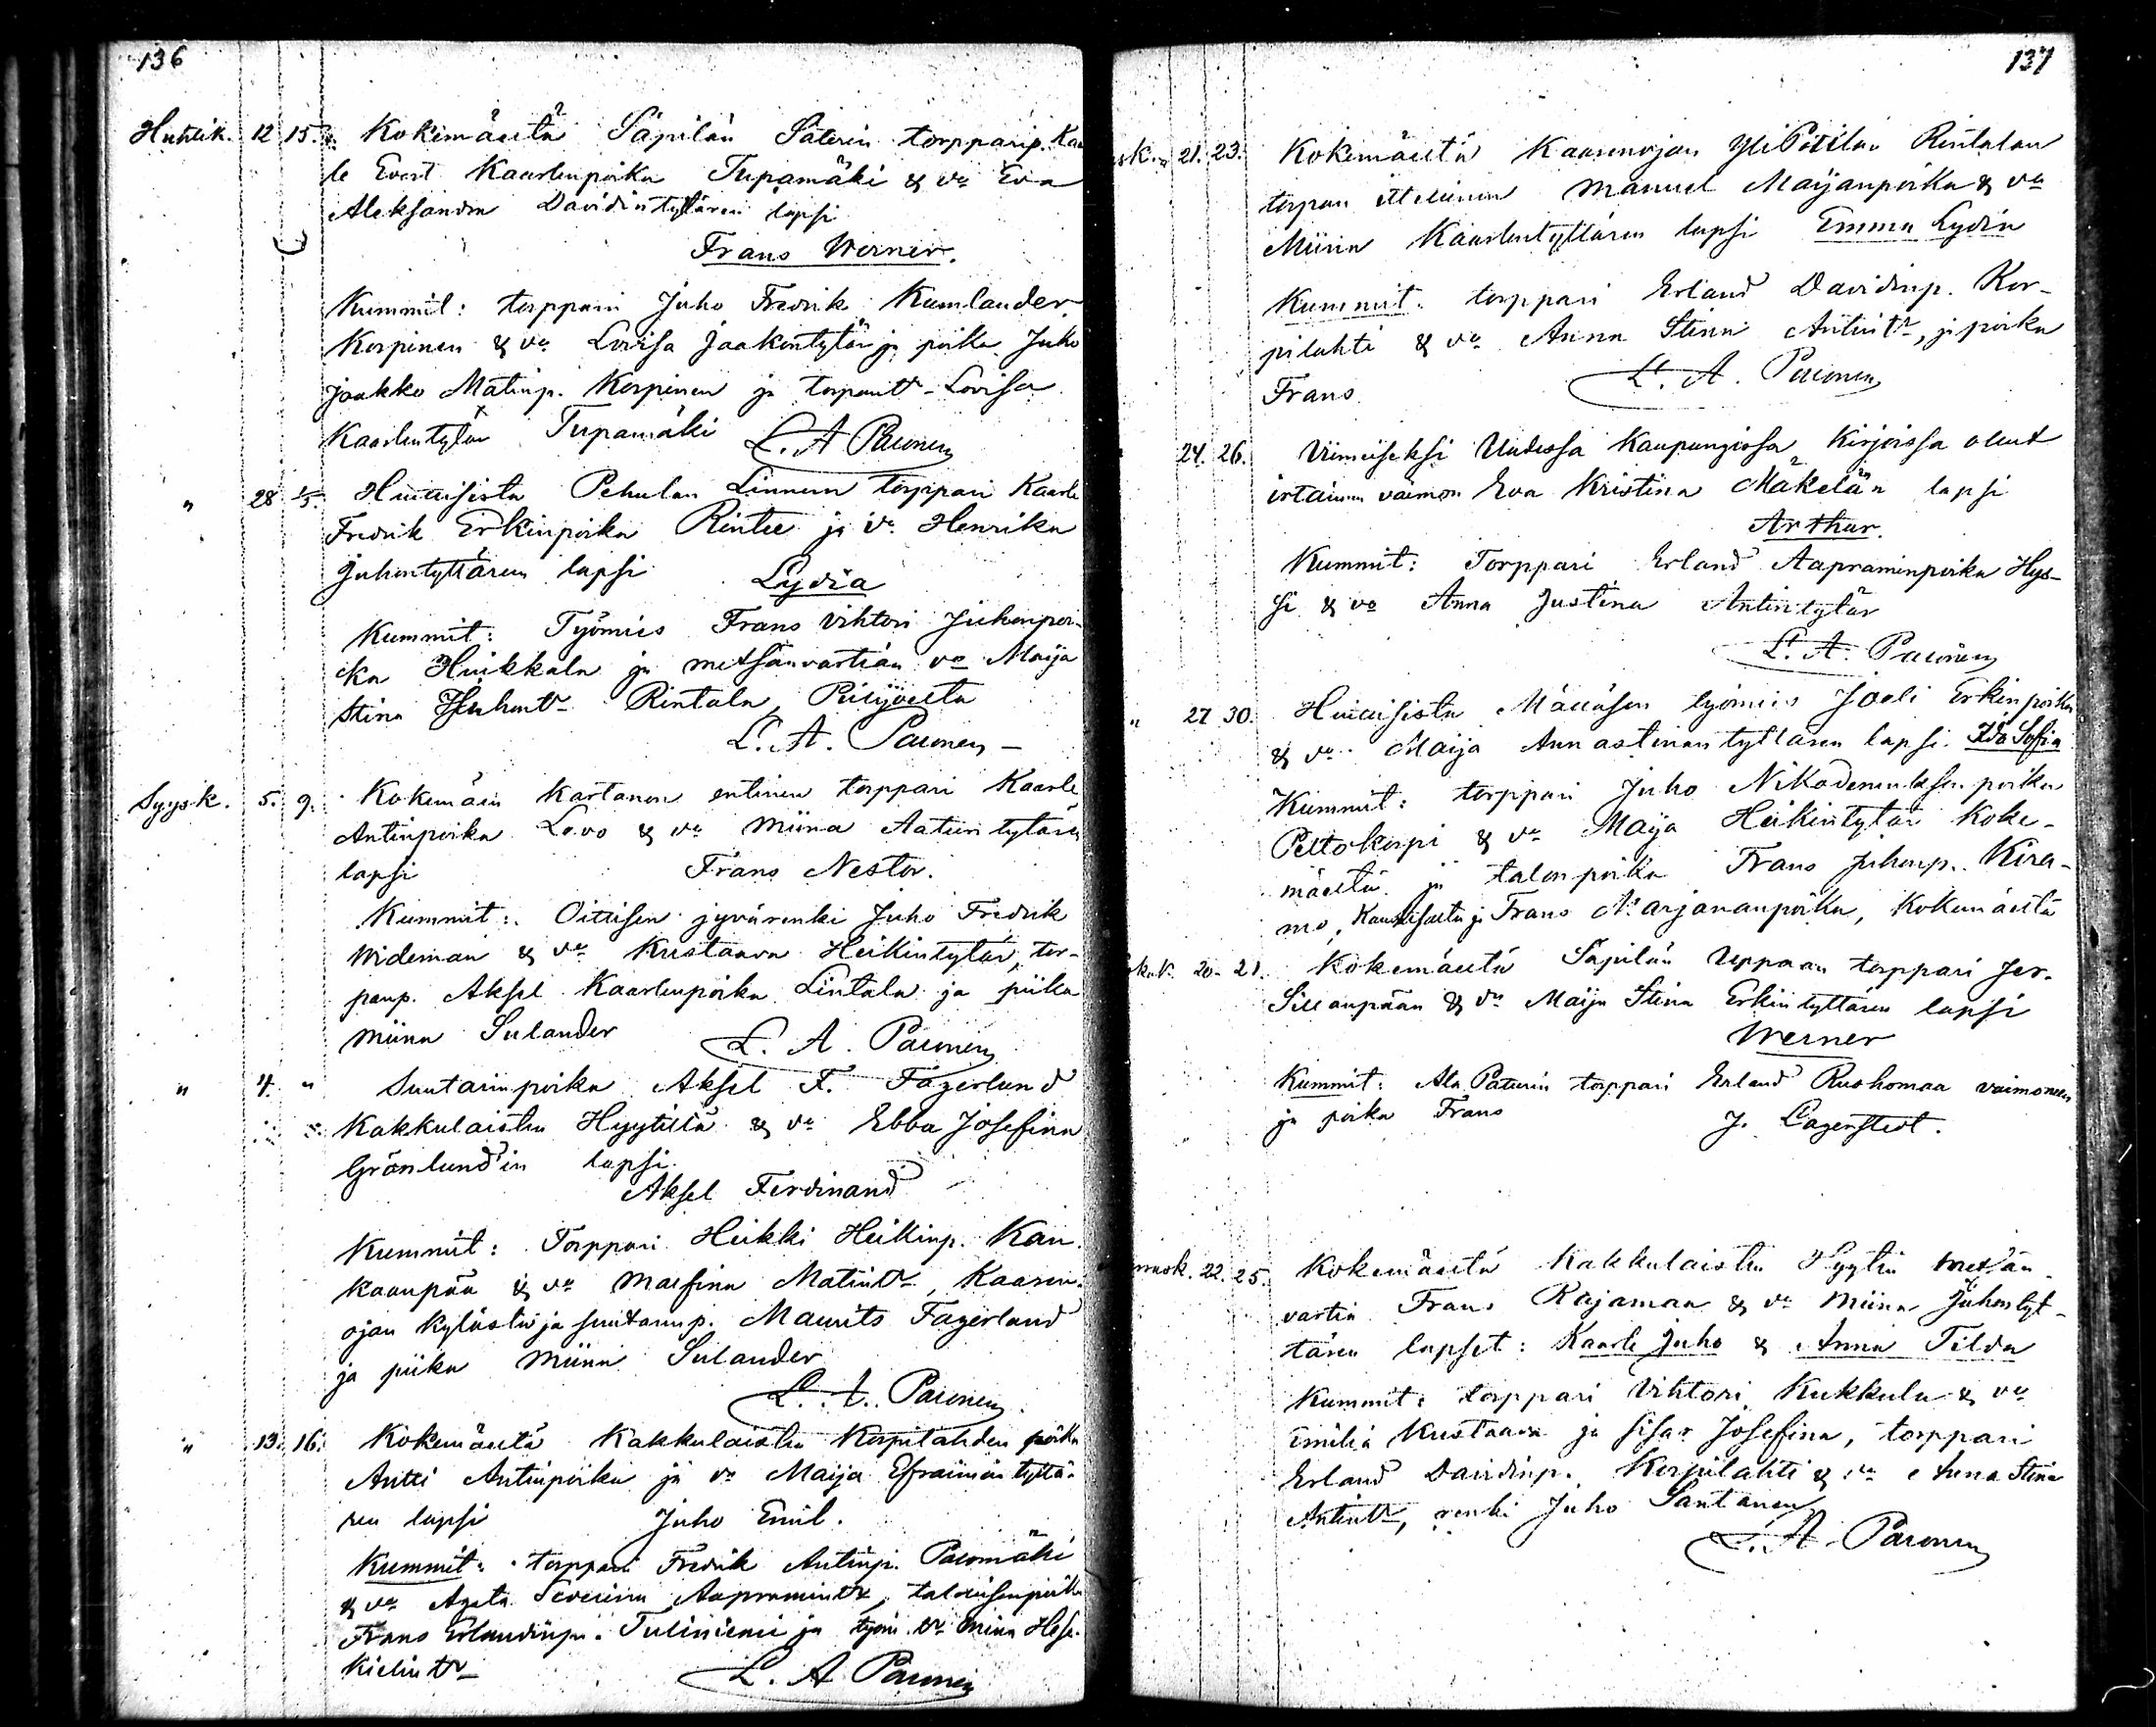 136
Huhtik. 12 15. Kokemäeltä Säpilän Säterin torpparip. Kaar
le Evert Kaarlenpoika Tupamäki & va Eva
Aleksandra Davidintyttären lapsi
Frans Werner.
Kummit: torppari Juho Fredrik Kumlander
Korpinen & va Lovisa Jaakontytär ja poika Juho
Jaakko Matinp. Korpinen ja torpantr Lovisa
Kaarlentytär Tupamäki L. A Paunen
" 28 1/5. Huiaisista Pehulan Linnun torppari Kaarle
Fredrik Erkinpoika Rintee ja va Henrika
Juhontyttären lapsi Lydia
Kummit: Työmies Frans Vihtori Juhonpoi-
ka Huikkala ja metsänvartian va Maija
Stina Juhontr Rintala,
L. A. Paunen
Syysk. 5. 9. Kokemäen Kartanon entinen torppari Kaarle
Antinpoika Levo & va Miina Aatuin tytären
lapsi Frans Nestor.
Kummit: Oitisen jyvärenki Juho Fredrik
Wideman & va Kustaava Heikintytär, tor-
panp. Aksel Kaarlenpoika Lintala ja piika
Miina Sulander L. A. Paunen
" 4. " Suutarinpoika Aksel F. Fagerlund
Kakkulaisten Hyytiltä & va Ebba Josefina
Grönlund'in lapsi
Aksel Ferdinand
Kummit: Torppari Heikki Heikinp. Kan
kaanpää & va Maefina Matintr, Kaaren-
ojan kylästä ja suutarinp. Maurits Fagerlund
ja piika Miina Sulander
L. A. Paunen
" 13. 16. Kokemäeltä Kakkulaisten Korpilahden poika
Antti Antinpoika ja va Maija Efraimin tyttä-
ren lapsi Juho Emil.
Kummit: torppari Fredrik Antinp. Paunmäki
& va Agata Severina Aapramintr, talollisenpoika
Frans Erlandinp. Tuliniemi ja työm. va Miina Hese-
kielintr L. A Paunen
137
sk. 21. 23. Kokemäeltä Kaarenojan YliPitilän Rintalan
torpan itellinen Manuel Maijanpoika & va
Miina Kaarlentyttären lapsi Emma Lydia
Kummit: torppari Erland Davidinp. Kor-
pilahti & va Anna Stina Antintr, ja poika
Frans L. A. Paunen
24. 26. Viimeiseksi Uudessa Kaupungissa kirjoissa ollut
irtainen vaimon Eva Kristina Mäkelän lapsi
Arthur.
Kummit: Torppari Erland Aapraminpoika Hys-
si & va Anna Justina Antintytär
L. A. Paunen
" 27 30. Huiaisista työmies Joeli Erkinpoika
& va Maija Annastinan tyttären lapsi Ida Sofia
Kummit: torppari Juho Nikodemuksenpoika
Peltokorpi & va Maija Heikintytär Koke-
mäeltä ja talonpoika Frans Juhonp. Kira-
mo, ja Frans Marjananpoika, Kokemäeltä
20. 21. Kokemäeltä Säpilän Uppaan torppari Jer.
Sillanpään & va Maija Stina Erkintyttären lapsi
Werner
Kummit: Ala Paturin torppari Erland Ruohomaa vaimoneen
ja poika Frans J. Lagerstedt.
rrask. 22. 25. Kokemäeltä Kakkulaisten Hyytin metsän
vartia Frans Rajamaa & va Miina Juhontyt-
tären lapset: Kaarle Juho & Anna Tilda
Kummit: torppari Vihtori Kukkula & va
Emilia Kustaava ja sisar Josefina, torppari
Erland Davidinp. Korpilahti & va Anna Stina
Antintr, renki Juho Santanen
L. A. Paunen